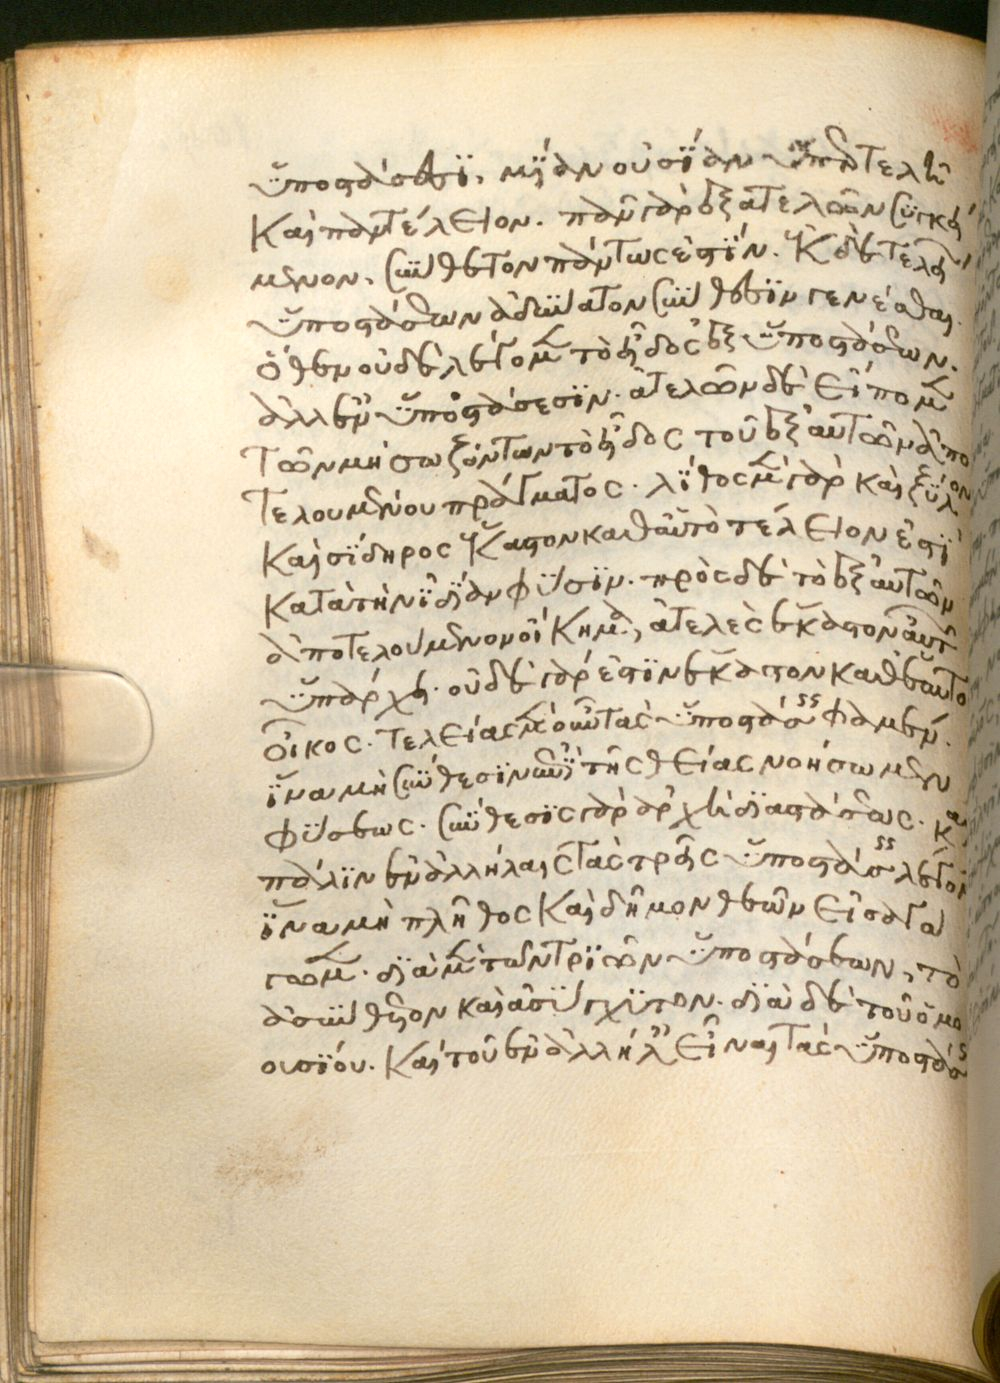 ὑποστάσεσϊ. μίαν οὐσΐαν ὑπερτελῆ
καὶ παντέλειον. πᾶν γὰρ ἐξ ἀτελῶν συγκεί
μενον, σύνθετον πάντως ἐστΐν. ἐκ δὲ τελείων
ὑποστάσεων ἀδύνατον σύνθεσϊν γενέσθαι.
ὅθεν οὐδὲ λέγομεν τὸ εἶδος ἐξ ὑποστάσεων.
ἀλλ' ἐν ὑποστάσεσϊν. ἀτελῶν δὲ εἴπομεν
τῶν μὴ σωζόντων τὸ εἶδος τοῦ ἐξ αὐτῶν ἀπο
τελουμένου πράγματος. λΐθος μὲν γὰρ καὶ ξύλον
καὶ σΐδηρος ἕκαστον καθ' αὑτὸ τέλειον ἐστϊ
κατὰ τὴν ἰδΐαν φύσϊν. πρὸς δὲ τὸ ἐξ αὐτῶν
ἀποτελούμενον οἴκημα, ἀτελὲς ἕκαστον αὐτῶν
ὑπάρχει. οὐδὲ γάρ ἐστϊν ἕκαστον καθ' ἑαυτὸ
οἶκος. τελείας μὲν οὖν τὰς ὑποστάσεις φαμέν.
ἵνα μὴ σύνθεσϊν ἐπὶ τῆς θείας νοήσωμεν
φύσεως. σύνθεσϊς γὰρ ἀρχὴ διαστάσεως. καὶ
πάλϊν ἐν ἀλλήλαις τὰς τρεῖς ὑποστάσεις λέγομεν
ἵνα μὴ πλῆθος καὶ δῆμον θεῶν εἰσαγά
γωμεν. διὰ μὲν τῶν τριῶν ὑποστάσεων, τὸ
ἀσύνθετον καὶ ἀσύγχυτον. διὰ δὲ τοῦ ὁμο
ουσΐου. καὶ τοῦ ἐν ἀλλήλαις εἶναι τὰς ὑποστάσεις